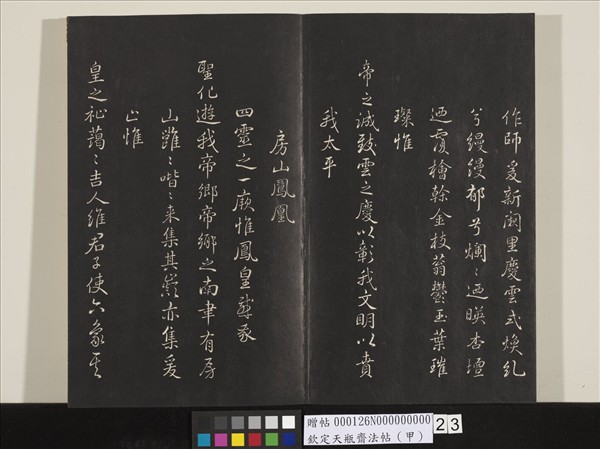 作師爰新闕里慶雲式煥糺
兮縵縵郁兮爛〻迺暎杏壇
迺霞檜榦金枝蓊鬱玉葉璀
璨惟
帝之誠致雲之慶以彰我文明以賁
我太平
房山鳳凰
四靈之一厥惟鳳皇
聖化遊我帝鄉帝鄉之南聿有房
山雝〻喈〻来集其巔亦集爰
止惟
皇之祉藹〻吉人維君子使六象
贈帖 000126N000000000
欽定天瓶齋法帖（甲）
23